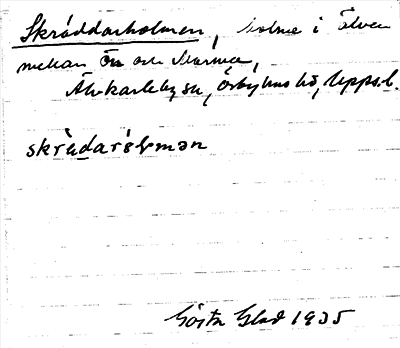 Skräddarholmen, holme i älven
mellan Ön och Marma,
Älvkarleby sn, Örbyhus hd, Upps. l.
skrädarhɷlmən
Gösta Glad 1935